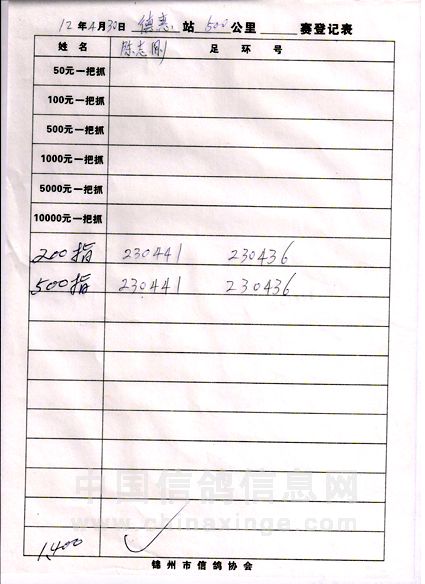 12年4月30日 德惠 站 500 公里 赛登记表
姓名 陈志刚 足环号
50元一把抓
100元一把抓
500元一把抓
1000元一把抓
5000元一把抓
10000元一把抓
200指 230441 230436
500指 230441 230436
中国信鸽信息网
www.chinaxinge.com
1400
锦州市信鸽协会